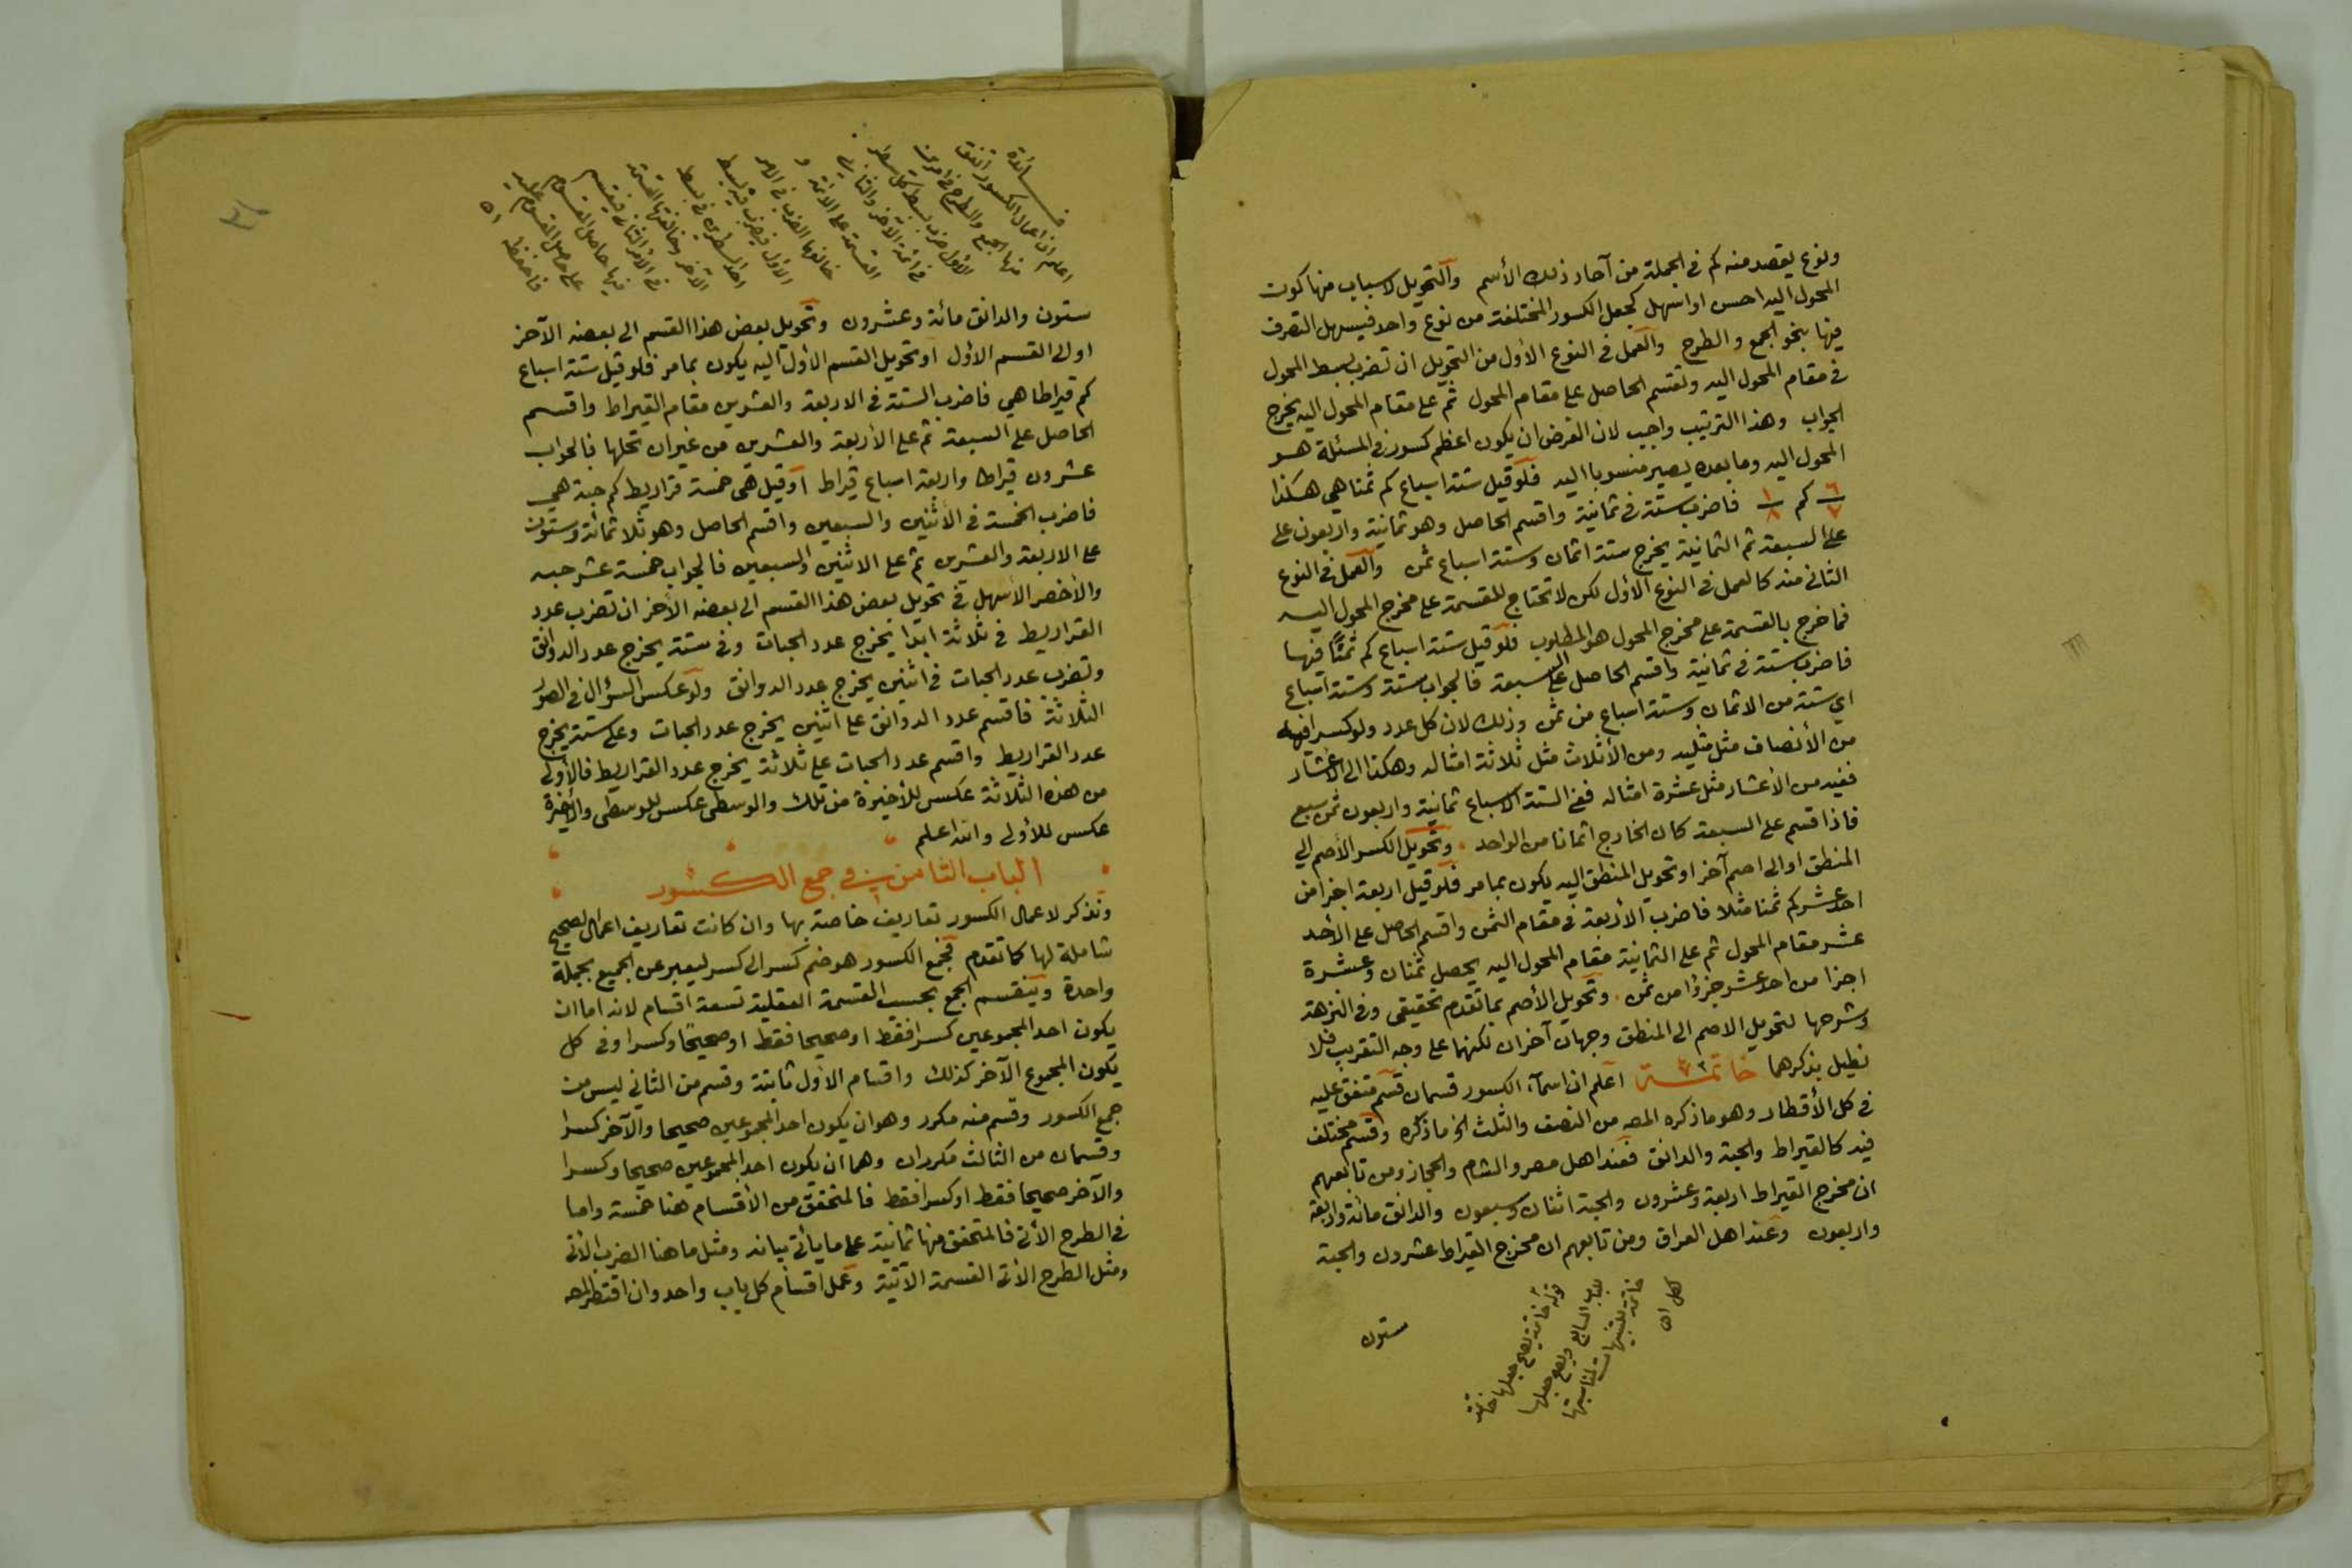 ونوع يقصد منه كم في الجملة من آحاد ذلك الأسم والتحويل لاسباب منها كون
المحول اليه احسن او اسهل كجعل الكسور المختلفة من نوع واحد فيسهل التصرف
فيها بنحو الجمع والطرح والعمل في النوع الأول من التحويل ان تضرب بسط المحول
في مقام المحول اليه وتقسم الحاصل على مقام المحول ثم على مقام المحول اليه يخرج
الجواب وهذا الترتيب واجب لان الغرض ان يكون اعظم كسور في المسئلة هو
المحول اليه وما بعده يصير منسوبا اليه فلو قيل ستة اسباع كم ثمنا هي هكذا
٦/٧ كم ١/٨ فاضرب ستة في ثمانية واقسم الحاصل وهو ثمانية واربعون على
على السبعة ثم الثمانية يخرج ستة اثمان وستة اسباع ثمن والعمل في النوع
الثاني منه كالعمل في النوع الأول لكن لا تحتاج للقسمة على مخرج المحول اليه
فما خرج بالقسمة على مخرج المحول هو المطلوب فلو قيل ستة اسباع كم ثمنًا فيها
فاضرب ستة في ثمانية واقسم الحاصل على السبعة فالجواب ستة وستة اسباع
اي ستة من الاثمان وستة اسباع من ثمن وذلك لان كل عدد ولو كسرا فيه
من الأنصاف مثل مثليه ومن الأثلاث مثل ثلاثة امثاله وهكذا الى الأعشار
ففيه من الأعشار مثل عشرة امثاله ففي الستة الاسباع ثمانية واربعون ثمن سبع
فاذا قسم على السبعة كان الخارج اثمانا من الواحد وتحويل الكسر الأصم الى
المنطق او الى اصم آخر او تحويل المنطق اليه يكون بما مر فلو قيل اربعة اجزا من
احد عشر كم ثمنا مثلا فاضرب الأربعة في مقام الثمن واقسم الحاصل على الأحد
عشر مقام المحول ثم على الثمانية مقام المحول اليه يحصل ثمنان وعشرة
اجزا من احد عشر جزؤا من ثمن وتحويل الأصم بما تقدم تحقيقي وفي النزهة
وشرحها لتحويل الاصم الى المنطق وجهان آخران لكنهما على وجه التقريب فلا
نطيل بذكرهما خاتمة اعلم ان اسماء الكسور قسمان قسم متفق عليه
في كل الأقطار وهو ما ذكره المصه من النصف والثلث الخ ما ذكره وقسم مختلف
فيه كالقيراط والحبة والدانق فعند اهل مصر والشام والحجاز ومن تابعهم
ان مخرج القيراط اربعة وعشرون والحبة اثنان وسبعون والدانق مائة واربعة
واربعون وعند اهل العراق ومن تابعهم ان مخرج القيراط عشرون والحبة
ستون
قوله خاتمة يصح جعلها خاتمة
للباب السابع ويصح جعلها
خاتمة للتنبيهات لمناسبتها
لكل اه
فائدة
اعلم ان اعمال الكسور اتفق
منها الجمع والطرح في امرين
الاول ضرب بسط كل سطر
في ائمة الآخر والثاني
القسمة على الائمة و
خالفها الضرب في الامر
الأول فيضرب فيه بسط
احد السطرين في بسط
الآخر وخالفتها القسمة
في الأمر الثاني فيقسم
فيها حاصل المقسوم
على حاصل المقسوم عليه
فاحفظ اه
ستون والدانق مائة وعشرون وتحويل بعض هذا القسم الى بعضه الآخر
او الى القسم الأول او تحويل القسم الأول اليه يكون بما مر فلو قيل ستة اسباع
كم قيراطا هي فاضرب الستة في الاربعة والعشرين مقام القيراط واقسم
الحاصل على السبعة ثم على الأربعة والعشرين من غير ان تحلها فالجواب
عشرون قيراطا واربعة اسباع قيراط او قيل هي خمسة قراريط كم حبة هي
فاضرب الخمسة في الأثنين والسبعين واقسم الحاصل وهو ثلاثمائة وستون
على الاربعة والعشرين ثم على الاثنين والسبعين فالجواب خمسة عشر حبه
والأخصر الأسهل في تحويل بعض هذا القسم الى بعضه الآخر ان تضرب عدد
القراريط في ثلاثة ابدا يخرج عدد الحبات وفي ستة يخرج عدد الدوانق
وتضرب عدد الحبات في اثنين يخرج عدد الدوانق ولو عكس السؤال في الصور
الثلاثة فاقسم عدد الدوانق على اثنين يخرج عدد الحبات وعلى ستة يخرج
عدد القراريط واقسم عدد الحبات على ثلاثة يخرج عدد القراريط فالأولى
من هذه الثلاثة عكس للأخيرة من تلك والوسطى عكس للوسطى والأخيرة
عكس للأولى والله اعلم
الباب الثامن في جمع الكسور
ونذكر لاعمال الكسور تعاريف خاصة بها وان كانت تعاريف اعمال الصحيح
شاملة لها كما تقدم فجمع الكسور هو ضم كسر الى كسر ليعبر عن الجميع بجملة
واحدة وينقسم الجمع بحسب القسمة العقلية تسعة اقسام لانه اما ان
يكون احد المجموعين كسرا فقط او صحيحا فقط او صحيحًا وكسرا وفي كل
يكون المجموع الآخر كذلك واقسام الأول ثابتة وقسم من الثاني ليس من
جمع الكسور وقسم منه مكرر وهو ان يكون احد المجموعين صحيحا والآخر كسرا
وقسمان من الثالث مكرران وهما ان يكون احد المجموعين صحيحا وكسرا
والآخر صحيحا فقط او كسرا فقط فالمتحقق من الأقسام هنا خمسة واما
في الطرح الأتي فالمتحقق منها ثمانية على ما يأتي بيانه ومثل ما هنا الضرب الأتي
ومثل الطرح الأتي القسمة الآتية وعمل اقسام كل باب واحد وان اقتصر المصه